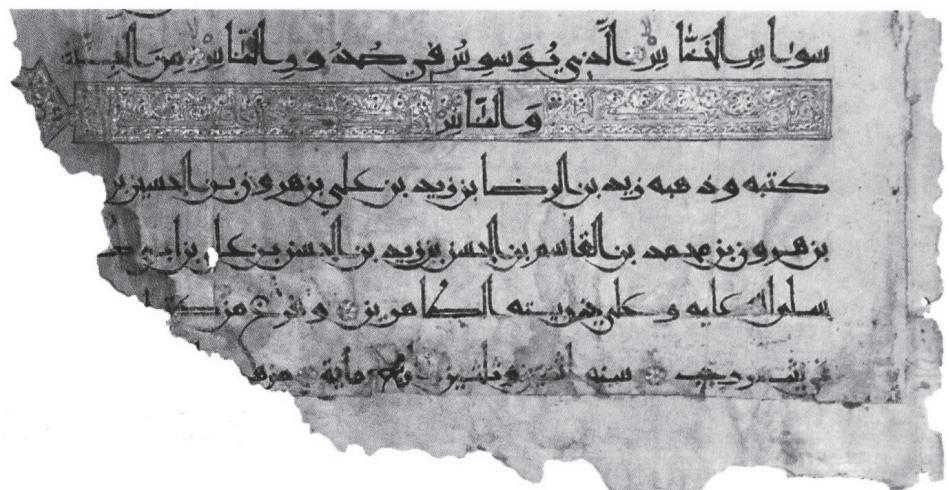 سواس الخناس الذي يوسوس في صدور الناس من الجنة
والناس
كتبه وذهبه زيد بن الرضا بن زيد بن علي بن هرون بن الحسين بن
بن هرون بن محمد بن القاسم بن الحسن بن زيد بن الحسن بن علي بن ابي
عليه وعلى ذريته الطاهرين وفرغ من
رجب سنه وثلثين مأية من